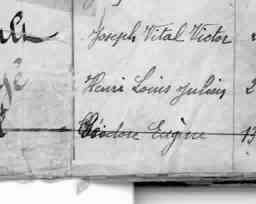 Joseph Vital Victor
Henri Louis Julien 2
Théodore Eugène 13